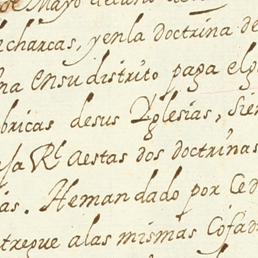 de Mayo
charcas, yenla doctrina de
na Ensu distrito paga el
bricas desus Yglesias, Sien
sa Rl. aestas dos doctrinas
as. Hemandado por Ced
tregue alas mismas Cofad